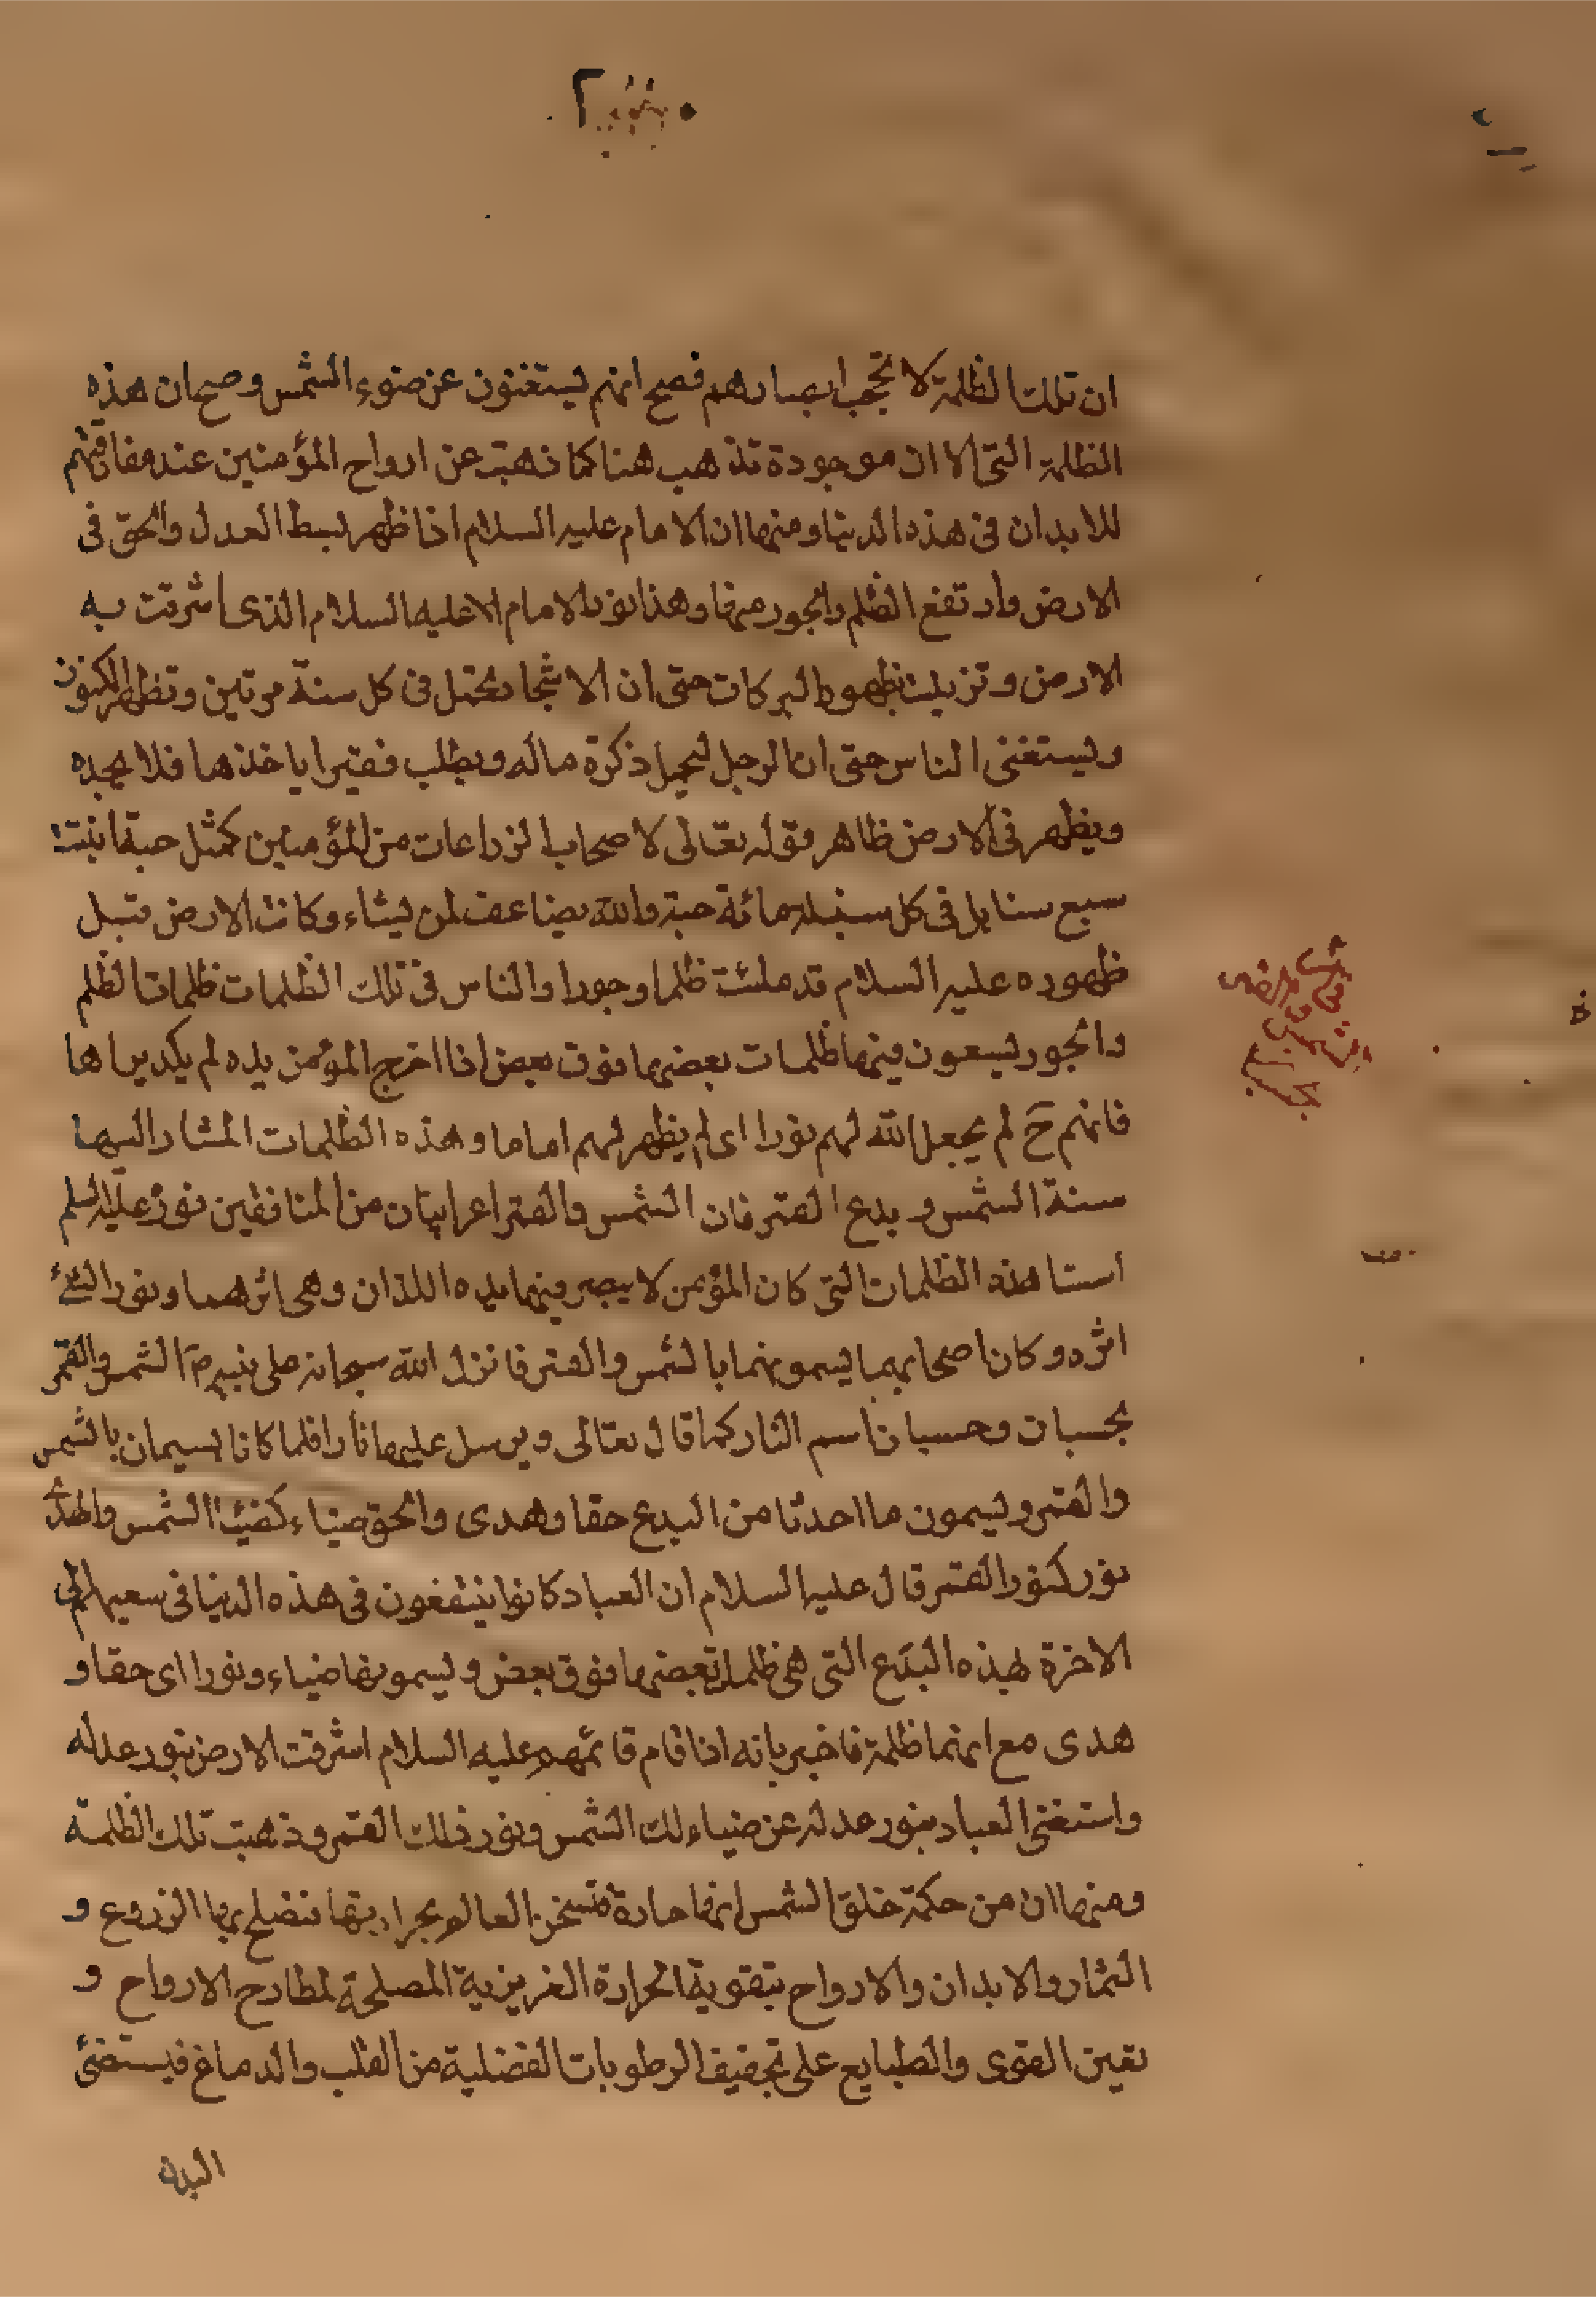 ان تلك الظلمة لا تحجب ابصارهم فصح انهم يستغنون عن ضوء الشمس وصح ان هذه
الظلمة التى الا ان موجودة تذهب هنا كما ذهبت عن ارواح المؤمنين عند مفارقتهم
للابدان فى هذه الدنيا ومنها ان الامام عليه السلام اذا ظهر بسط العدل والحق فى
الارض وارتفع الظلم والجور منها وهذا نور الامام الا عليه السلام الذى اشرقت به
الارض وتزيلت بظهوره البركات حتى ان الاشجار تحمل فى كل سنة مرتين وتظهر الكنوز
ويستغنى الناس حتى ان الرجل ليحمل ذكرة ماله ويطلب فقيرا ياخذها فلا يجده
ويظهر فى الارض ظاهر قوله تعالى لاصحاب الزراعات من المؤمنين كمثل حبة انبتت
سبع سنابل فى كل سنبلة مائة حبة والله يضاعف لمن يشاء وكانت الارض قبل
ظهوره عليه السلام قد ملئت ظلما وجورا والناس فى تلك الظلمات ظلمات الظلم
والجور يسعون فيها ظلمات بعضها فوق بعض اذا اخرج المؤمن يده لم يكد يراها
فانهم ح لم يجعل الله لهم نورا اى لم يظهر لهم اماما وهذه الظلمات المشار اليها
سنة الشمس وبدع القمر فان الشمس والقمر اعرابيان من المنافقين نوره عليه السلم
استا هذه الظلمات التى كان المؤمن لا يبصر فيها يده اللذان وهى اثرهما ونور الشئ
اثره وكان اصحابهما يسمونهما بالشمس والقمر فانزل الله سبحانه على نبيه ص الشمس والقمر
بحسبان وحسبان اسم النار كما قال تعالى ويرسل عليها نارا فلما كانا يسميان بالشمس
والقمر ويسمون ما احدثا من البدع حقا وهدى والحق ضياء كضياء الشمس والهدى
نور كنور القمر قال عليه السلام ان العباد كانوا ينتفعون فى هذه الدنيا فى سعيهم الى
الاخرة لهذه البدع التى هى ظلمات بعضها فوق بعض ويسمونها ضياء ونورا اى حقا و
هدى مع انهما ظلمة فاخبر بانه اذا قام قائمهم عليه السلام اشرقت الارض بنور عدله
واستغنى العباد بنور عدله عن ضياء لك الشمس ونور ذلك القمر وذهبت تلك الظلمة
ومنها ان من حكمة خلق الشمس انها حارة فتسخن العالم بحرارتها فتصلح بها الزروع و
الثمار والابدان والارواح بتقوية الحرارة الغريزية المصلحة لمطارح الارواح و
تعين القوى والطبايع على تجفيف الرطوبات الفضلية من القلب والدماغ فيستضئ
البدن